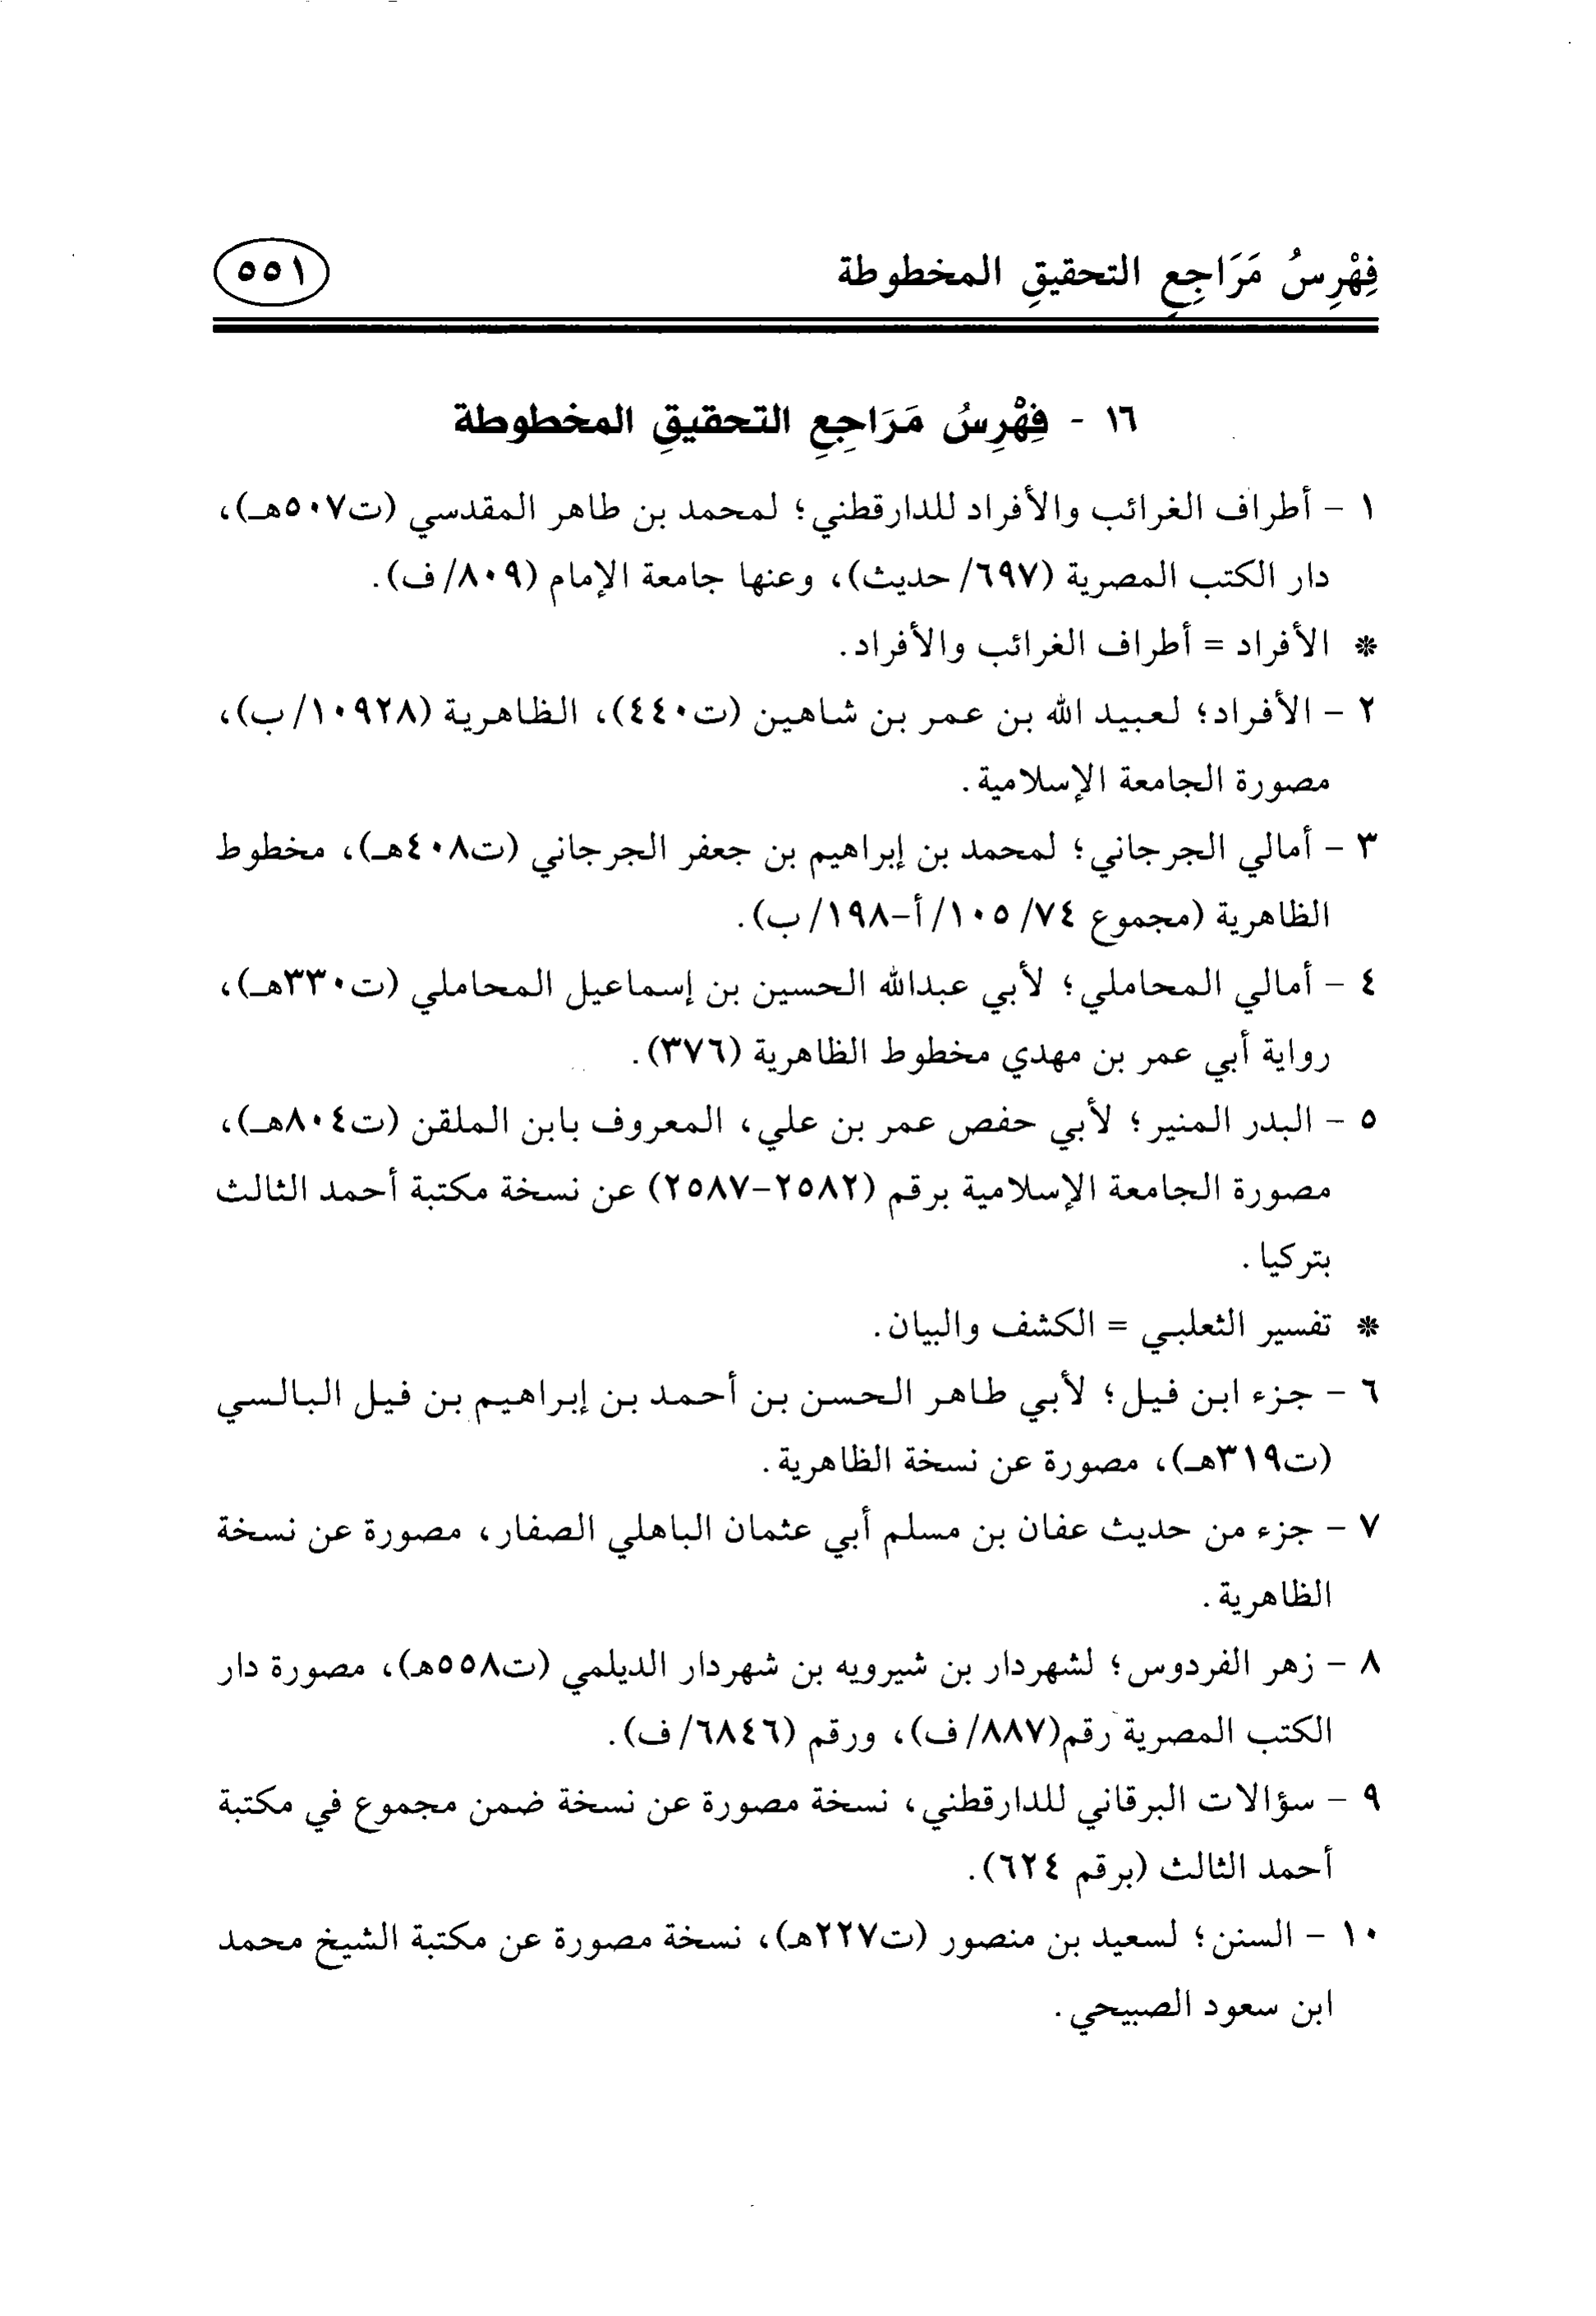 فِهْرِسُ مَرَاجِعِ التحقيقِ المخطوطة
٥٥١
١٦ - فِهْرِسُ مَرَاجِعِ التحقيقِ المخطوطة
١ - أطراف الغرائب والأفراد للدارقطني؛ لمحمد بن طاهر المقدسي (ت٥٠٧هـ)،
دار الكتب المصرية (٦٩٧/حديث)، وعنها جامعة الإمام (٨٠٩/ف).
* الأفراد = أطراف الغرائب والأفراد.
٢ - الأفراد؛ لعبيد الله بن عمر بن شاهين (ت٤٤٠)، الظاهرية (١٠٩٢٨/ب)،
مصورة الجامعة الإسلامية.
٣ - أمالي الجرجاني؛ لمحمد بن إبراهيم بن جعفر الجرجاني (ت٤٠٨هـ)، مخطوط
الظاهرية (مجموع ٧٤/ ١٠٥/أ-١٩٨/ب).
٤ - أمالي المحاملي؛ لأبي عبدالله الحسين بن إسماعيل المحاملي (ت٣٣٠هـ)،
رواية أبي عمر بن مهدي مخطوط الظاهرية (٣٧٦).
٥ - البدر المنير؛ لأبي حفص عمر بن علي، المعروف بابن الملقن (ت٨٠٤هـ)،
مصورة الجامعة الإسلامية برقم (٢٥٨٢-٢٥٨٧) عن نسخة مكتبة أحمد الثالث
بتركيا.
* تفسير الثعلبي = الكشف والبيان.
٦ - جزء ابن فيل؛ لأبي طاهر الحسن بن أحمد بن إبراهيم بن فيل البالسي
(ت٣١٩هـ)، مصورة عن نسخة الظاهرية.
٧ - جزء من حديث عفان بن مسلم أبي عثمان الباهلي الصفار، مصورة عن نسخة
الظاهرية.
٨ - زهر الفردوس؛ لشهردار بن شيرويه بن شهردار الديلمي (ت٥٥٨هـ)، مصورة دار
الكتب المصرية رقم(٨٨٧/ف)، ورقم (٦٨٤٦/ف).
٩ - سؤالات البرقاني للدارقطني، نسخة مصورة عن نسخة ضمن مجموع في مكتبة
أحمد الثالث (برقم ٦٢٤).
١٠ - السنن؛ لسعيد بن منصور (ت٢٢٧هـ)، نسخة مصورة عن مكتبة الشيخ محمد
ابن سعود الصبيحي.